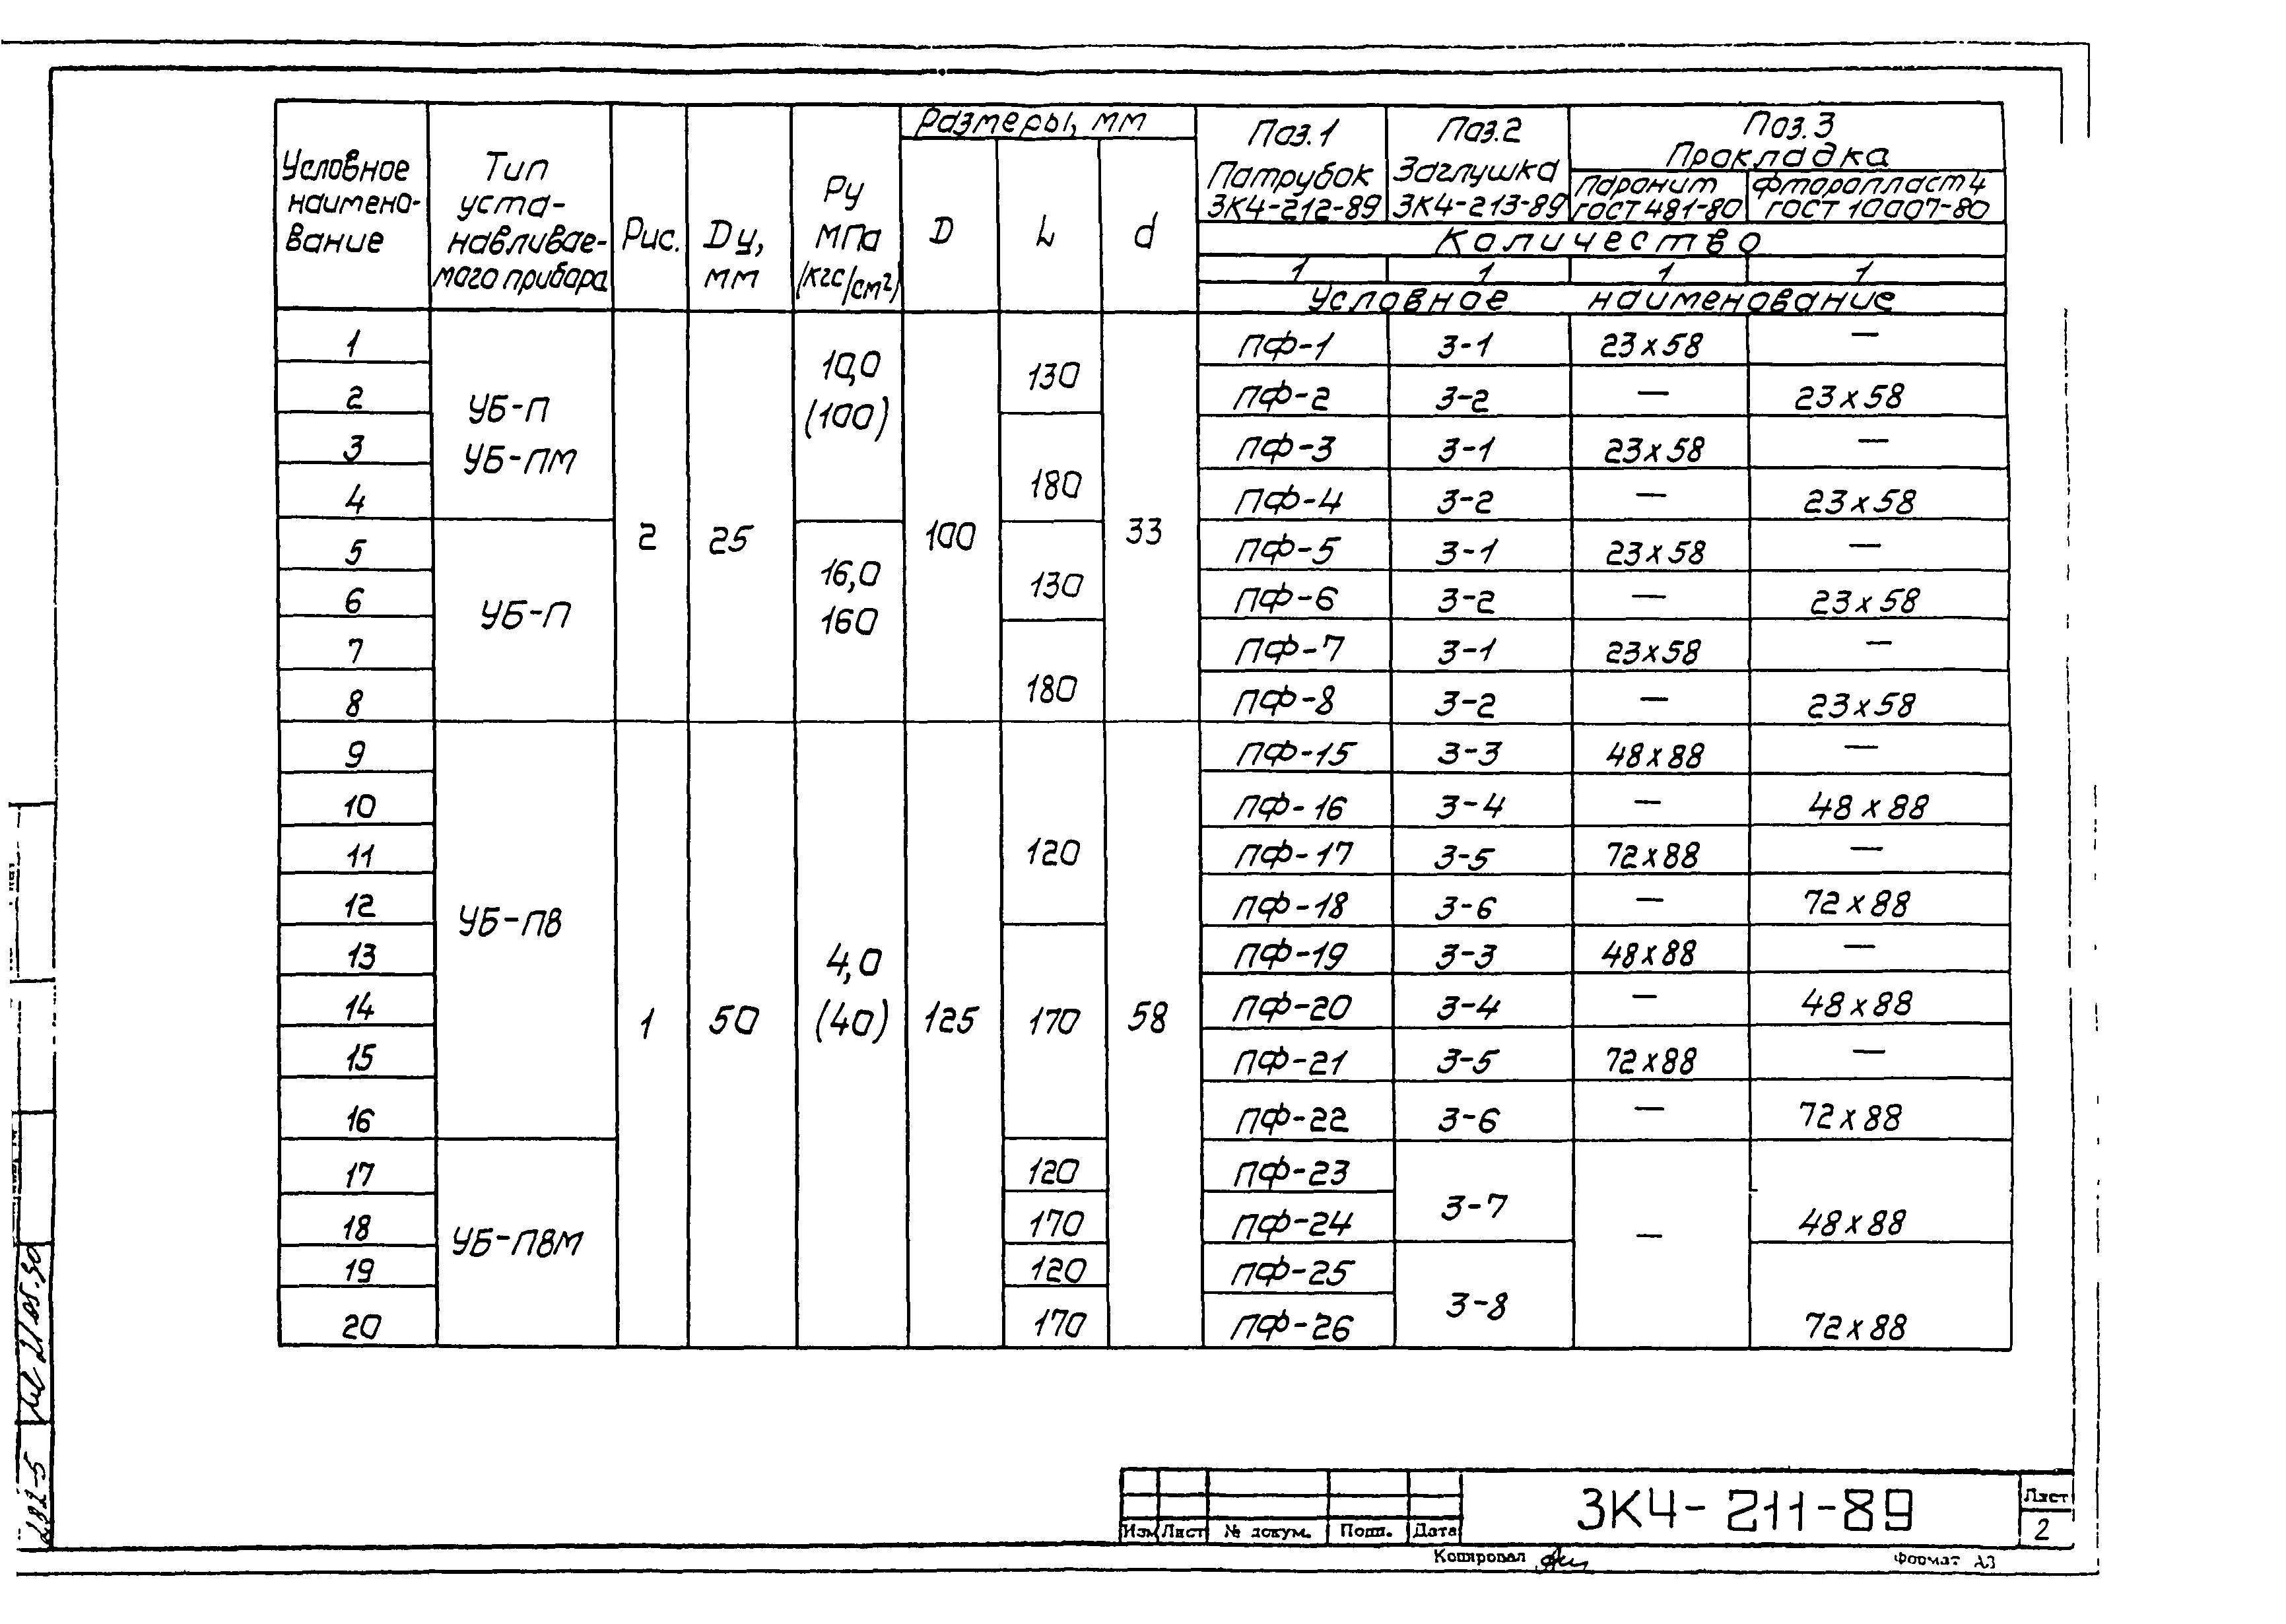 Условное наимено-вание
Тип уста-навливае-мого прибора
Рис.
Dу, мм
Ру МПа (кгс/см²)
Размеры, мм
D
L
d
Поз.1 Патрубок ЗК4-212-89
Поз.2 Заглушка ЗК4-213-89
Поз.3 Прокладка
Паронит ГОСТ 481-80
Фторопласт 4 ГОСТ 10007-80
Количество
1 1 1 1
Условное наименование
1 УБ-П УБ-ПМ 2 25 10,0 (100) 100 130 33 ПФ-1 З-1 23х58 —
2 ПФ-2 З-2 — 23х58
3 180 ПФ-3 З-1 23х58 —
4 ПФ-4 З-2 — 23х58
5 УБ-П 16,0 160 130 ПФ-5 З-1 23х58 —
6 ПФ-6 З-2 — 23х58
7 180 ПФ-7 З-1 23х58 —
8 ПФ-8 З-2 — 23х58
9 УБ-ПВ 1 50 4,0 (40) 125 120 58 ПФ-15 З-3 48х88 —
10 ПФ-16 З-4 — 48х88
11 ПФ-17 З-5 72х88 —
12 ПФ-18 З-6 — 72х88
13 170 ПФ-19 З-3 48х88 —
14 ПФ-20 З-4 — 48х88
15 ПФ-21 З-5 72х88 —
16 ПФ-22 З-6 — 72х88
17 УБ-ПВМ 120 ПФ-23 З-7 — 48х88
18 170 ПФ-24
19 120 ПФ-25 З-8 72х88
20 170 ПФ-26
Изм Лист № докум. Подп. Дата
ЗК4-211-89
Лист
2
Копировал
Формат А3